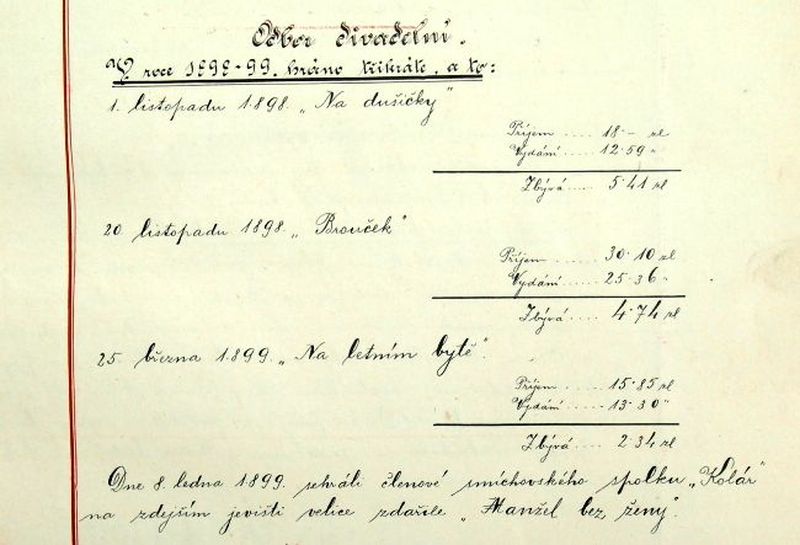 Odbor divadelní.
V roce 1898-99. hráno třikráte, a to:
1. listopadu 1898. „Na dušičky"
Příjem .... 18·— zl
Vydání ..... 12·59 "
Zbývá .... 5·41 zl
20. listopadu 1898. „Brouček"
Příjem .... 30·10 zl
Vydání ..... 25·36 "
Zbývá .... 4·74 zl
25. března 1899. „Na letním bytě".
Příjem ..... 15·85 zl
Vydání ..... 13·30 "
Zbývá .... 2·34 zl
Dne 8. ledna 1899. sehráli členové smíchovského spolku „Kolár"
na zdejším jevišti velice zdařile „Manžel bez ženy".